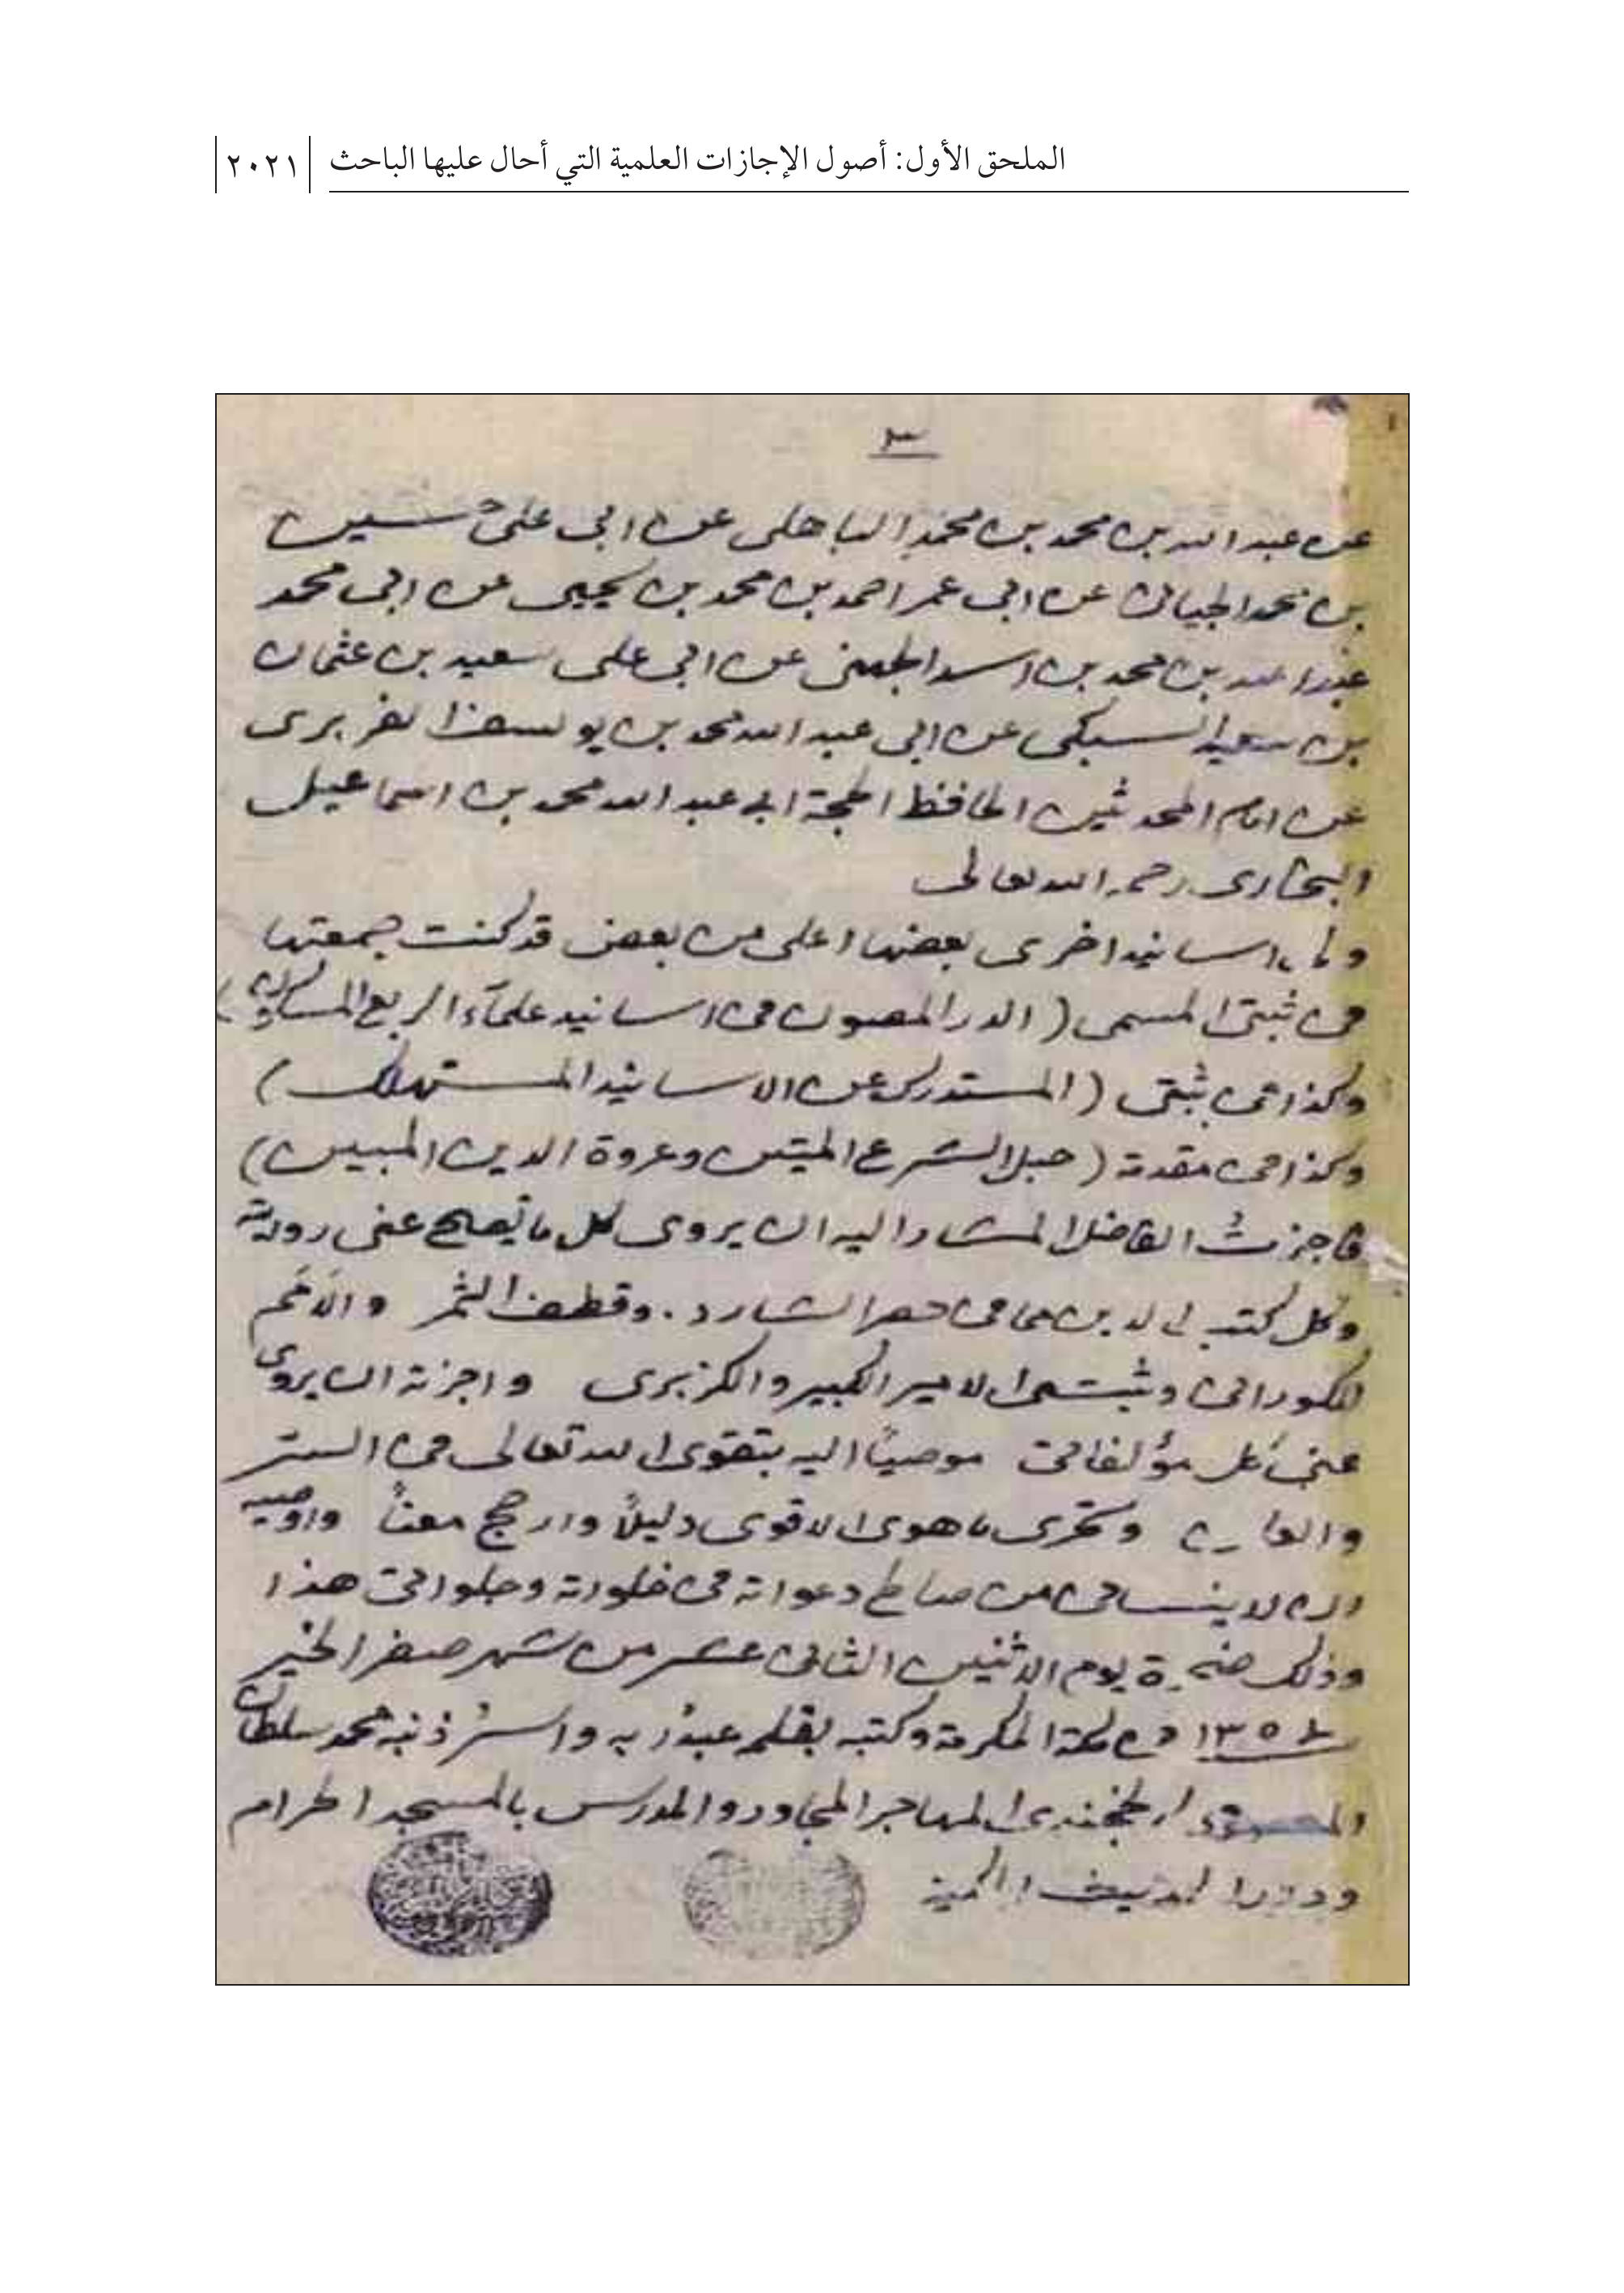 الملحق الأول: أصول الإجازات العلمية التي أحال عليها الباحث ٢٠٢١
٣
عن عبد الله بن محمد بن محمد الباهلى عن ابى على حسين
بن محمد الجيانى عن ابى عمر احمد بن محمد بن يحيى عن ابى محمد
عبد الله بن محمد بن اسد الجهنى عن ابى على سعيد بن عثمان
بن سعيد السبكى عن ابى عبد الله محمد بن يوسف الفربرى
عن امام المحدثين الحافظ الحجة ابى عبد الله محمد بن اسماعيل
البخارى رحمه الله تعالى
ولى اسانيد اخرى بعضها اعلى من بعض قد كنت جمعتها
فى ثبتى المسمى (الدر المصون فى اسانيد علماء الربع المسكون)
وكذا فى ثبتى (المستدرك عن الاسانيد المستهلك)
وكذا فى مقدمة (حبل الشرع المتين وعروة الدين المبين)
فاجزت الفاضل المشار اليه ان يروى كل ما تصلح عنى روايته
وكل كتب فى حصر الشارد . وقطف الثمر والأمم
للكورانى وثبت الامير الكبير والكزبرى واجزته ان يروى
عنى كل مؤلفاتى موصيًا اليه بتقوى الله تعالى فى الستر
وتحرى ما هو الاقوى دليلًا وارجح معنًا واوصيه
ان لا ينسانى من صالح دعواته فى خلواته وجلواتى هذا
وذلك ضحوة يوم الاثنين الثانى عشر من شهر صفر الخير
١٣٥٤ فى مكة المكرمة وكتبه بقلمه عبد ربه واسير ذنبه محمد سلطان
المعصومى الخجندى المهاجر المجاور والمدرس بالمسجد الحرام